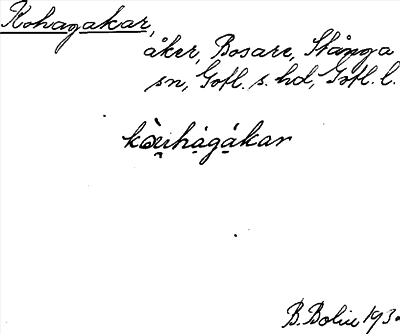 Kohagakar,
åker, Bosare, Stånga
sn, Gotl. s. hd, Gotl. l.
kò̱u̱há̱gá̱kar
B. Bolin